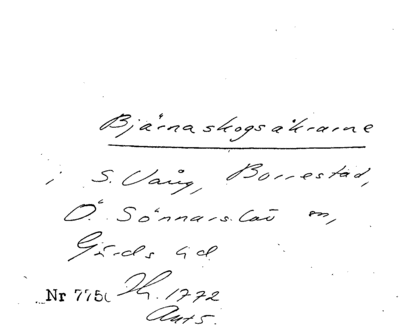 Bjärnaskogsåkrarne
i S. Vång, Borrestad,
Ö. Sönnarslöv sn,
Gärds hd
Nr 775 1772